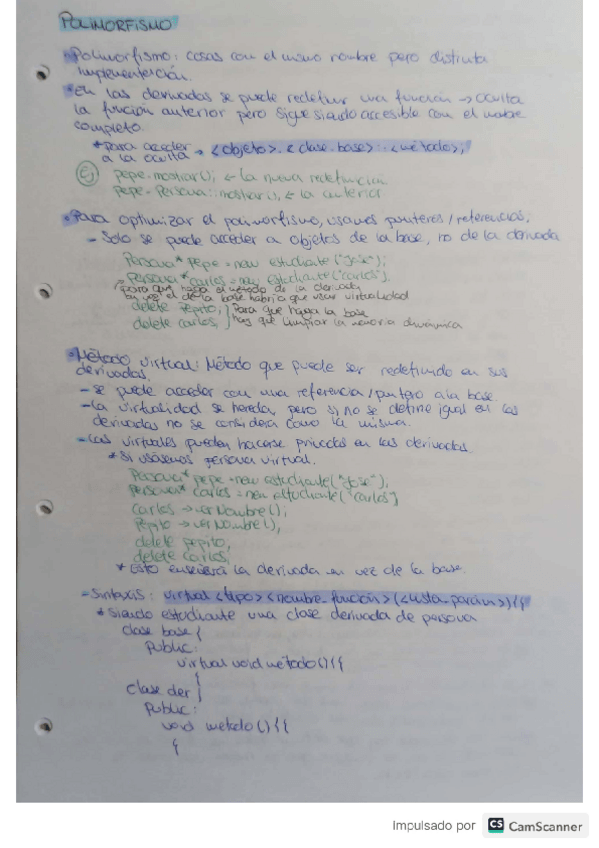 POLIMORFISMO
Polimorfismo: cosas con el mismo nombre pero distinta
implementación.
En las derivadas se puede redefinir una función → oculta
la función anterior pero sigue siendo accesible con el nombre
completo.
* para acceder
a la oculta → <objeto>.<clase-base>::<método>;
Ej pepe.mostrar(); ← la nueva redefinición
pepe.Persona::mostrar(); ← la anterior
Para optimizar el polimorfismo, usamos punteros/referencias,
- Solo se puede acceder a objetos de la base, no de la derivada
Persona* pepe = new estudiante("José");
Persona* carlos = new estudiante("carlos").
* para que haga el método de la derivada
en vez el de la base habría que usar virtualidad
delete pepito, } Para que haya la base
delete carlos, } hay que limpiar la memoria dinámica
Método virtual: Método que puede ser redefinido en sus
derivadas.
- Se puede acceder con una referencia/puntero a la base
- La virtualidad se hereda, pero si no se define igual en las
derivadas no se considera como la misma.
- Las virtuales pueden hacerse privadas en las derivadas.
* Si usásemos persona virtual.
Persona* pepe = new estudiante("José");
Persona* carlos = new estudiante("carlos")
carlos → verNombre();
Pepito → verNombre(),
delete pepito,
delete carlos
* Esto enseñará la derivada en vez de la base.
- Sintaxis: virtual <tipo><nombre-función>(<lista-parám>){{
* Siendo estudiante una clase derivada de persona
clase base {
public:
virtual void método(){{
}
clase der }
public:
void metodo(){{
{
Impulsado por CS CamScanner